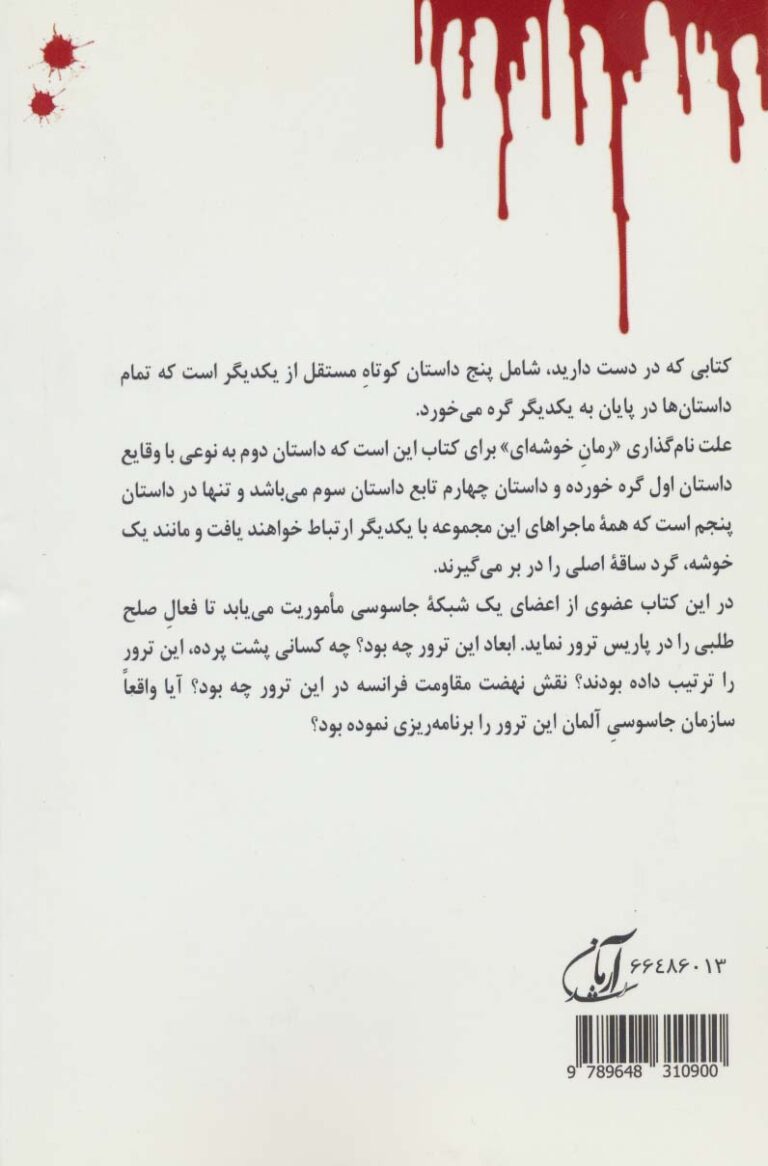 کتابی که در دست دارید، شامل پنج داستان کوتاهِ مستقل از یکدیگر است که تمام
داستان‌ها در پایان به یکدیگر گره می‌خورد.
علت نام‌گذاری «رمانِ خوشه‌ای» برای کتاب این است که داستان دوم به نوعی با وقایع
داستان اول گره خورده و داستان چهارم تابع داستان سوم می‌باشد و تنها در داستان
پنجم است که همهٔ ماجراهای این مجموعه با یکدیگر ارتباط خواهند یافت و مانند یک
خوشه، گرد ساقهٔ اصلی را در بر می‌گیرند.
در این کتاب عضوی از اعضای یک شبکهٔ جاسوسی مأموریت می‌یابد تا فعالِ صلح
طلبی را در پاریس ترور نماید. ابعاد این ترور چه بود؟ چه کسانی پشت پرده، این ترور
را ترتیب داده بودند؟ نقش نهضت مقاومت فرانسه در این ترور چه بود؟ آیا واقعاً
سازمان جاسوسیِ آلمان این ترور را برنامه‌ریزی نموده بود؟
آرمان رشد ۶۶۴۸۶۰۱۳
9 789648 310900